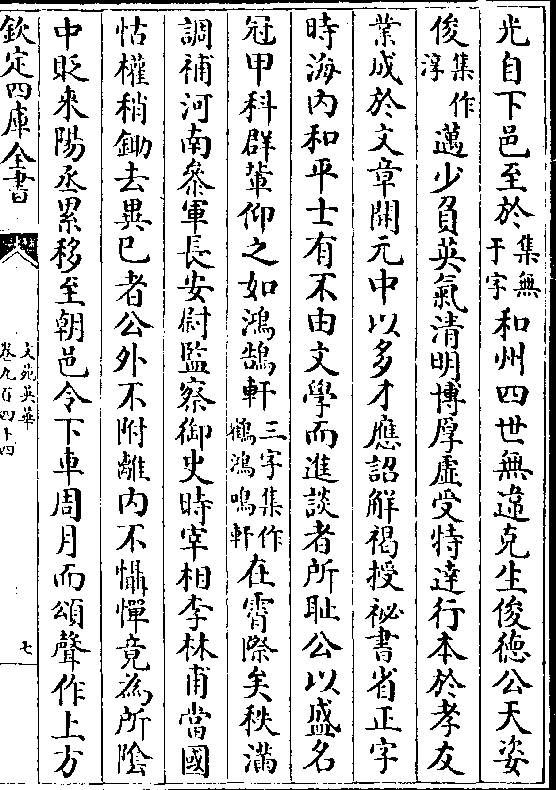 光自下邑至於集無于字和州四世無違克生俊德公天姿
俊集作浮邁少負英氣清明博厚虛受特達行本於孝友
業成於文章開元中以多才應詔解褐授祕書省正字
時海内和平士有不由文學而進談者所耻公以盛名
冠甲科群輩仰之如鴻鵠軒三字集作鶴鴻鳴軒在霄際矣秩滿
調補河南叅軍長安尉監察御史時宰相李林甫當國
怙權稍鋤去異已者公外不附離内不懾憚竟為所陰
中貶來陽丞累移至朝邑令下車周月而頌聲作上方
欽定四庫全書
文苑英華
卷九百四十四
七